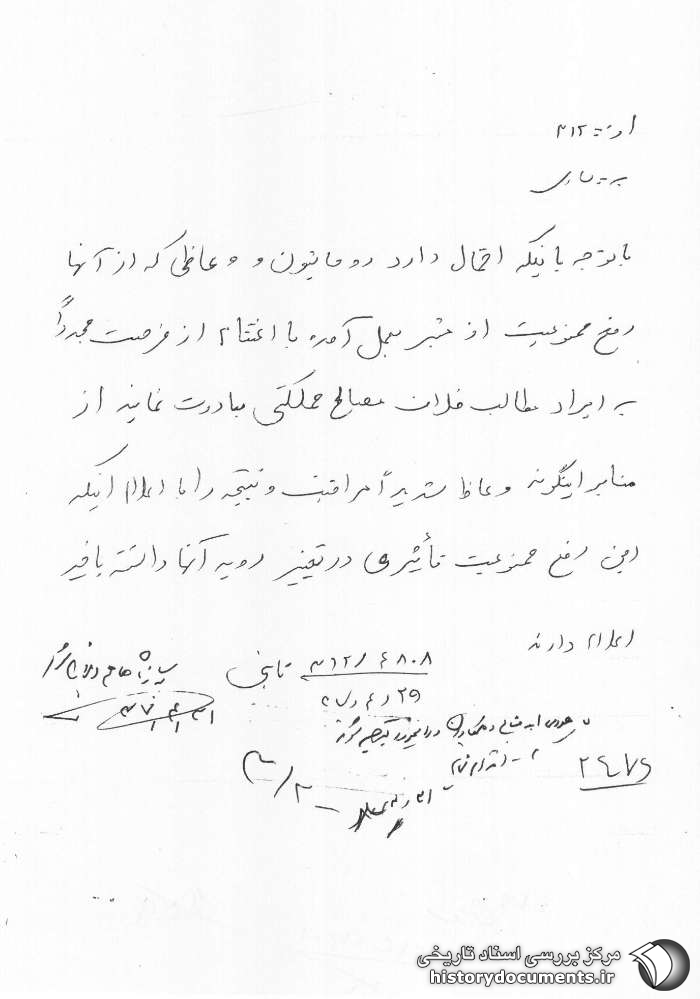 از: ۳۱۲
به: ساری
باتوجه باینکه احتمال دارد روحانیون و وعاظی که از آنها
رفع ممنوعیت از منبر بعمل آمده با اغتنام از فرصت مجدداً
به ایراد مطالب خلاف مصالح مملکتی مبادرت نمایند از
منابر اینگونه وعاظ شدیداً مراقبت و نتیجه را با اعلام اینکه
این رفع ممنوعیت تأثیری در تغییر رویه آنها داشته یا خیر
اعلام دارند
۳۱۲/۴۸۰۸ ثابتی
۲۹/۴/۴۷
۳۱/۴/۴۷
۲۴۷۶
مرکز بررسی اسناد تاریخی
historydocuments.ir